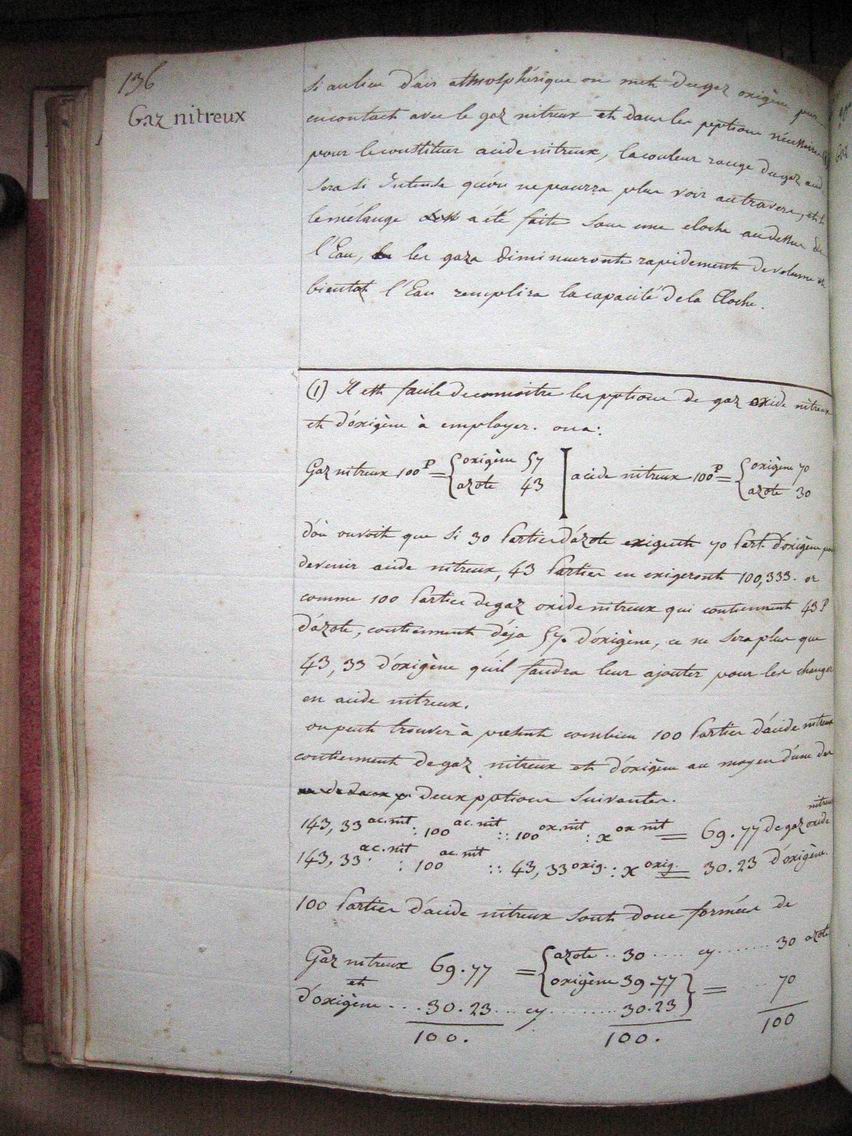 136
Gaz nitreux
Si au lieu d'air atmosphérique on met du gaz oxigène pur
en contact avec le gaz nitreux et dans les pptions nécessaires
pour le constituer acide nitreux, la couleur rouge du gaz
sera si Intense qu'on ne pourra plus voir au travers, et si
le mélange a été faite sous une cloche au dessus de
l'Eau, les gazs diminueront rapidement de volume et
bientot l'Eau remplira la capacité de la Cloche.
(1) Il est facile de connoitre les pptions de gaz oxide nitreux
et d'oxigène à employer. on a:
Gaz nitreux 100 P = { oxigène 57 azote 43 | acide nitreux 100 P = { oxigène 70 azote 30
d'où on voit que si 30 Parties d'azote exigent 70 Part. d'oxigène pour
devenir acide nitreux, 43 Parties en exigeront 100,333. or
comme 100 Parties de gaz oxide nitreux qui contiennent 43 P
d'azote, contiennent déja 57. d'oxigène, ce ne sera plus que
43,33 d'oxigène qu'il faudra leur ajouter pour les changer
en acide nitreux.
on peut trouver à présent combien 100 Parties d'acide nitreux
contiennent de gaz nitreux et d'oxigène au moyen d'une des
deux pptions suivantes.
143,33 ac. nit : 100 ac. nit :: 100 ox. nit : x ox nit = 69.77 de gaz oxide nitreux
143,33 ac. nit : 100 ac. nit :: 43,33 oxig. : x oxig. = 30.23 d'oxigène.
100 Parties d'acide nitreux sont donc formées de
Gaz nitreux 69.77 = { azote .. 30 .... cy ....... 30 azote
et oxigène 39.77 } = .. 70
d'oxigène .... 30.23 ... cy ......... 30.23
100. 100. 100